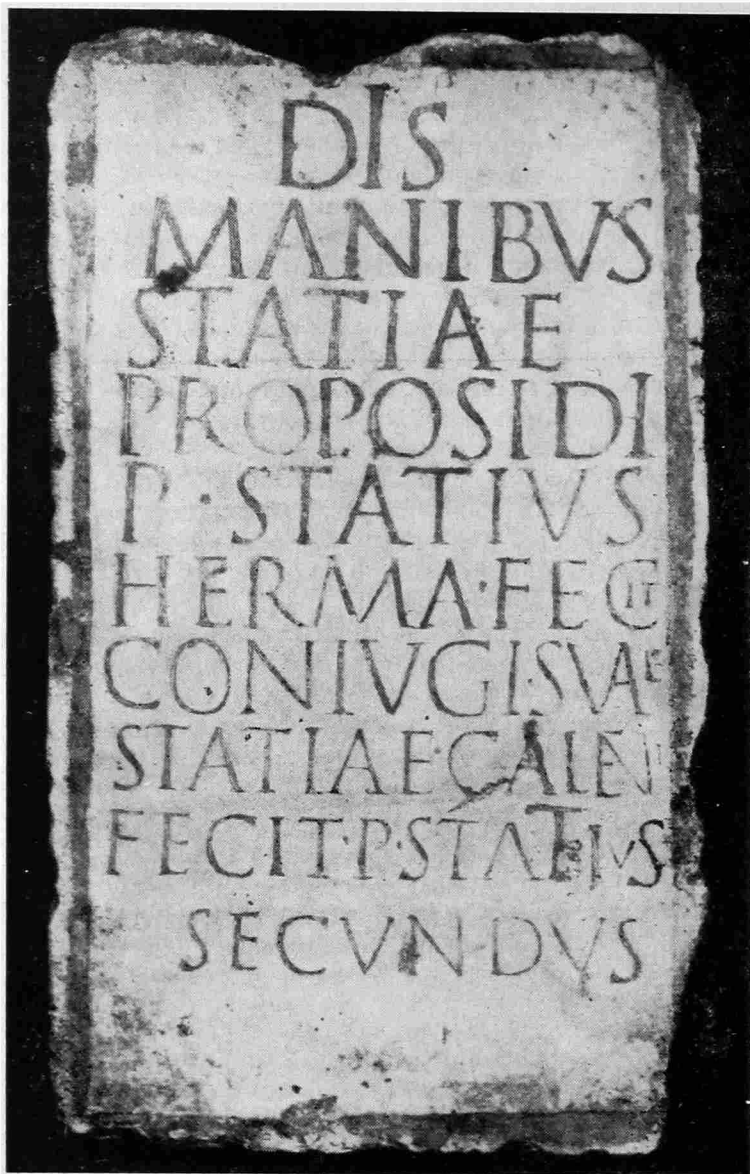 DIS
MANIBVS
STATIAE
PROPOSIDI
P · STATIVS
HERMA · FECIT
CONIVGI · SVAE
STATIAE
FECIT · P · STATIVS
SECVNDVS